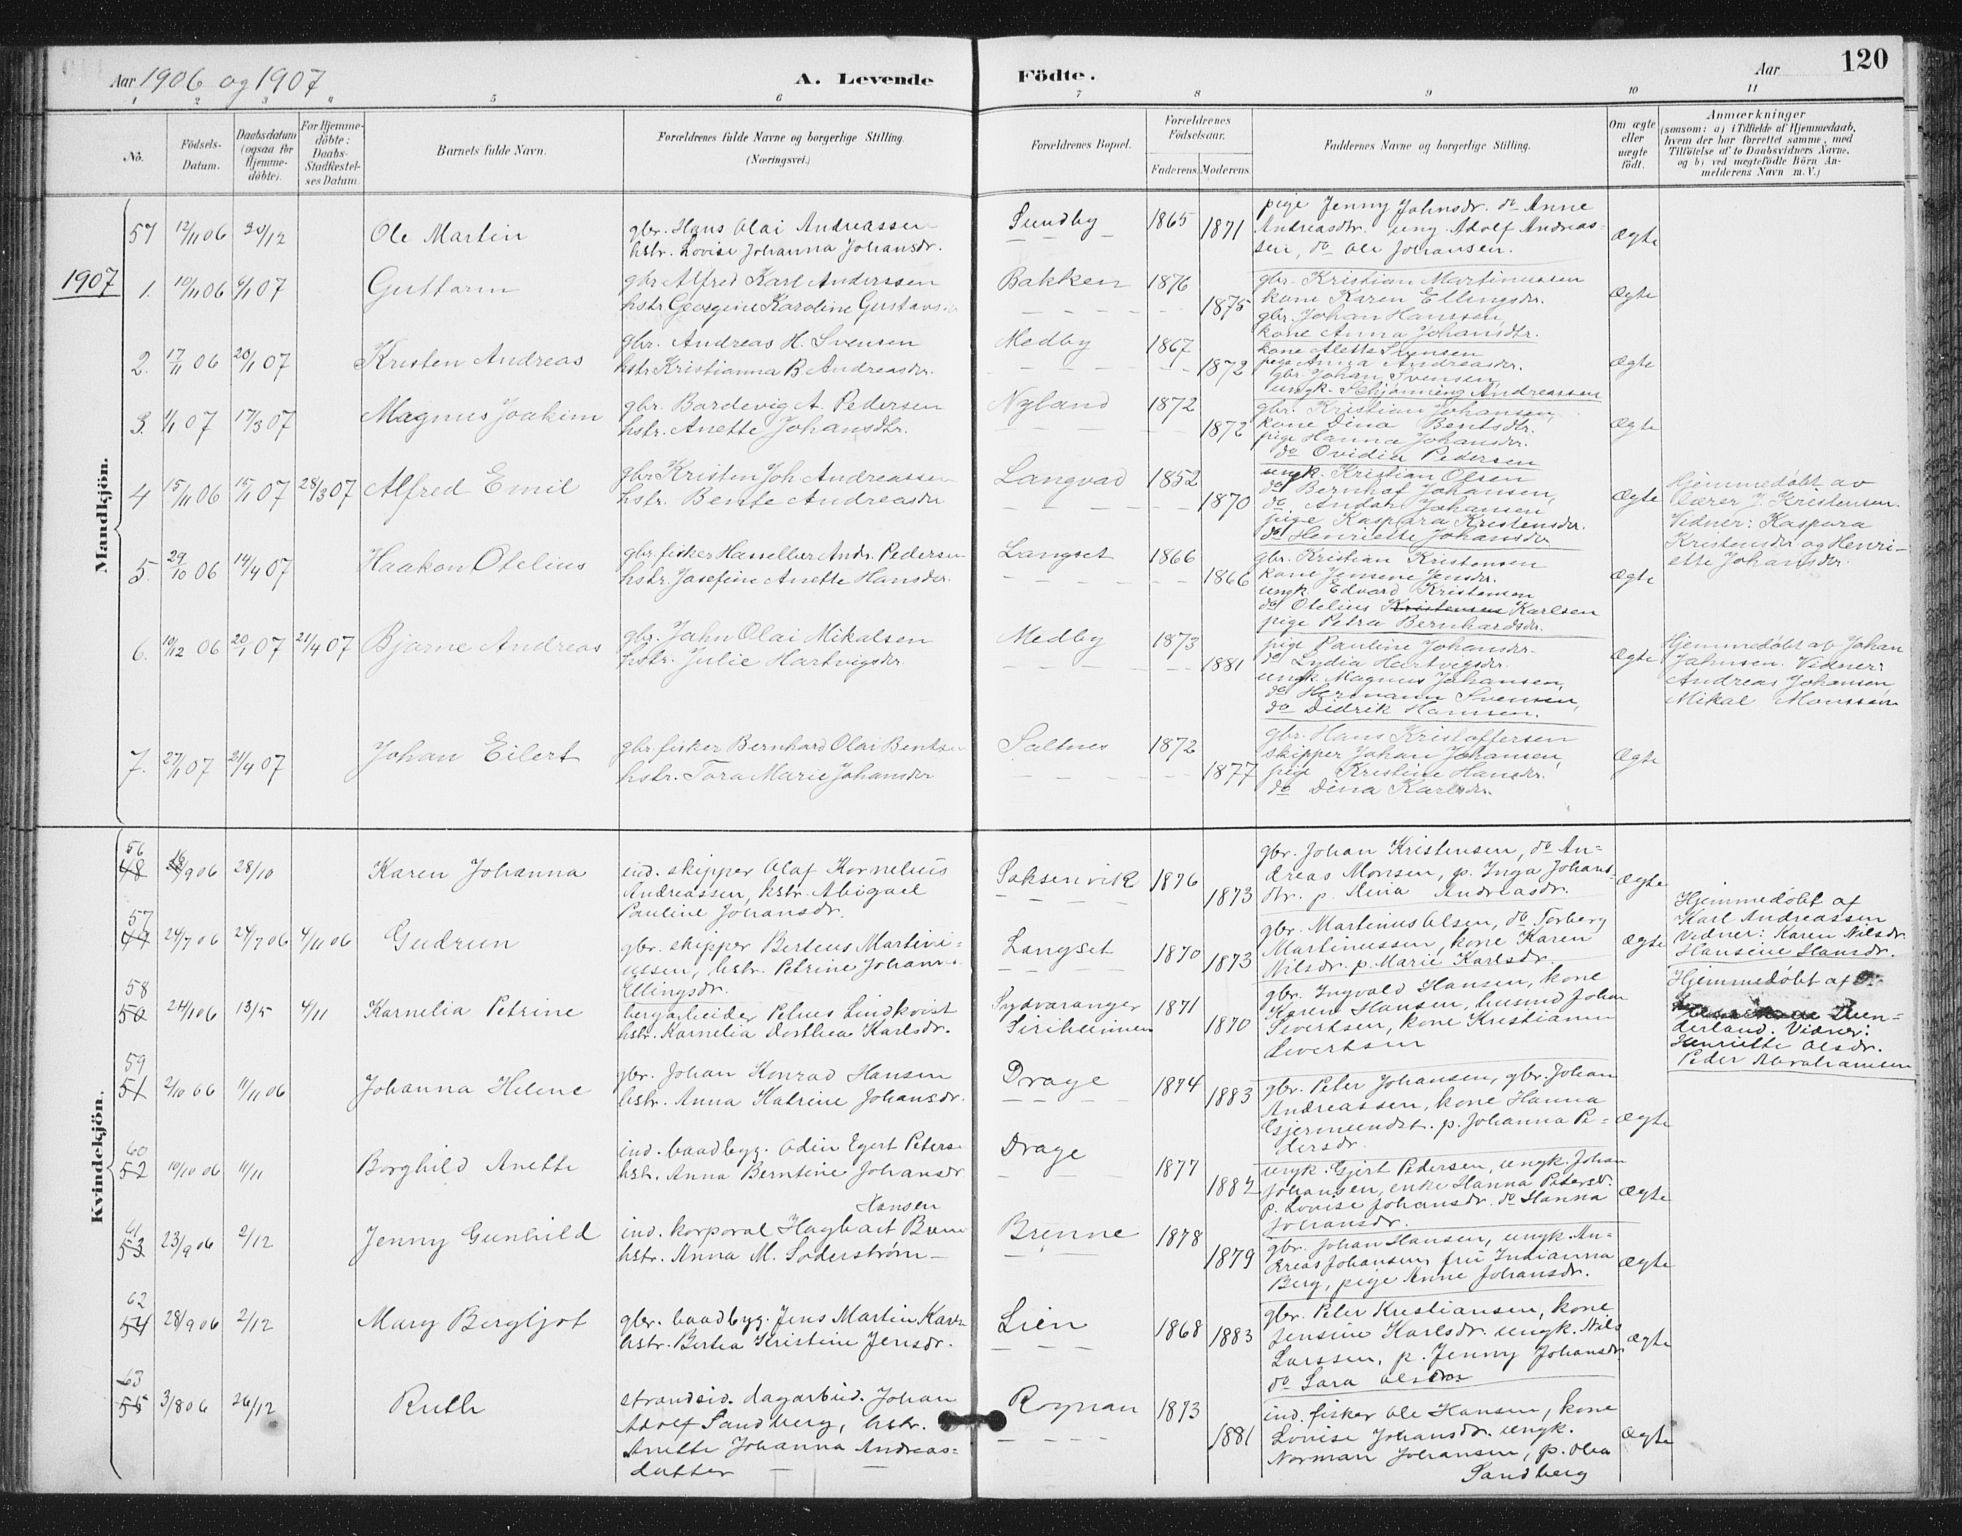 Aar 1906 og 1907
A. Levende Födte.
Aar
120
1 2 3 4 5 6 7 8 9 10 11
No.
Födsels-
Datum.
Daabsdatum
(ogsaa for
Hjemme-
døbte).
For Hjemme-
døbte:
Daabs-
Stadfæstel-
ses Datum.
Barnets fulde Navn.
Forældrenes fulde Navne og borgerlige Stilling.
(Næringsvei.)
Forældrenes Bopæl.
Forældrenes
Födselsaar.
Faderens. Moderens.
Faddernes Navne og borgerlige Stilling.
Om ægte
eller
uægte
født.
Anmærkninger
(saasom: a) i Tilfælde af Hjemmedaab,
hvem der har forrettet samme, med
Tilföielse af to Daabsvidners Navne,
og b) ved uægtefödte Börn An-
melderens Navn m. V.)
Mandkjön.
57 12/11 06 26/12 Ole Martin
gbr. Hans Olai Andreassen
hstr. Lovise Johanna Johansdr.
Sundby 1865 1871
pige Jenny Johnsdr. do Anne
Andreasdtr. ung. Adolf Andreas-
sen, do Ole Johansen.
Ægte
1907
1. 10/11 06 6/1 07 Guttorm
gbr Alfred Karl Anderssen
hstr Georgine Karoline Gustavs
Bakken 1876 1875
gbr. Kristian Martinussen
kone Karen Ellingsdr.
gbr. Johan Hanssen,
kone Anna Johansdtr.
Ægte
2. 17/11 06 20/1 07 Kristen Andreas
gbr. Andreas H. Svensen
hstr Kristianna B Andreasdr.
Medby 1867 1872
kone Alette Svensen
pige Anna Andreasdr.
gbr. Johan Svensen,
ungk. Schjønning Andreassen
Ægte
3. 1/1 07 17/3 07 Magnus Joakim
gbr. Bordevig A. Pedersen
hstr. Anette Johansdtr.
Nyland 1872 1872
gbr. Kristian Johansen,
kone Dina Bentsdtr.
pige Hanna Johansdr.
do Ovidia Pedersen
Ægte
4 15/11 06 15/1 07 28/3 07 Alfred Emil
gbr Kristen Joh Andreassen
hstr. Bente Andreasdr
Langvad 1852 1870
ungk. Kristian Olsen
do Bernhof Johansen,
do. Andor Johansen
pige Kaspara Kristensdr.
do Henriette Johansdr
Ægte
Hjemmedøbt av
Lærer J. Kristensen.
Vidner: Kaspara
Kristensdr og Henri-
ette Johansdr.
5. 29/10 06 14/4 07 Haakon Otelius
gbr. fisker Hasselius Andr. Pedersen
hstr. Josefine Anette Hansdr.
Langset 1866 1866
gbr. Kristian Kristensen
kone Jensine Jensdr.
ungk. Edvard Kristensen
do Otelius Kristensen Karlsen
pige Petra Bernhardsdr.
Ægte
6. 10/12 06 20/1 07 21/4 07 Bjarne Andreas
gbr. John Olai Mikalsen
hstr. Julie Hartvigsdr.
Medby 1873 1881
pige Pauline Johansdr.
do Lydia Hartvigsdr.
ungk Magnus Johansen,
do Hermann Svensen,
do Didrik Hansen.
Ægte
Hjemmedøbt av Johan
Johnsen. Vidner:
Andreas Johansen
Mikal Monssen
7. 27/1 07 21/4 07 Johan Eilert
gbr. fisker Bernhard Olai Bentsen
hstr. Tora Marie Johansdr
Saltnes 1872 1877
gbr. Hans Kristoffersen
skipper Johan Johansen,
pige Kristine Hansdr.
do Dina Karlsdr.
Ægte
Kvindekjön.
56
48 /9 06 28/10 Karen Johanna
ind. skipper Olaf Kornelius
Andreassen, hstr. Abigael
Pauline Johansdr.
Saksenvik 1876 1873
gbr. Johan Kristensen, do An-
dreas Monsen, p. Inga Johans-
dtr. p. Anna Andreasdr.
Ægte
57
49 24/7 06 24/7 06 4/11 06 Gudrun
gbr. skipper Berteus Martini-
ussen, hstr. Petrine Johanna
Ellingsdr.
Langset 1870 1873
gbr. Martinus Olsen, do Torberg
Martinussen, kone Karen
Nilsdr. p. Marie Karlsdr.
Ægte
Hjemmedøbt af
Karl Andreassen
Vidner: Karen Nilsdr.
Hansine Hansdr.
58
50 24/1 06 13/5 4/11 Kornelia Petrine
bergarbeider Petrus Lindkvist
hstr. Kornelia Dorthea Karlsdr.
Sydvaranger 1871 1870
gbr. Ingvald Hansen, kone
Karen Hansen, husmd Johan
Sivertsen, kone Kristianna
Sivertsen
Hjemmedøbt af
derland. Vidner:
Henriette Olsdr.
Peder Abrahamsen
59
51 2/10 06 11/11 06 Johanna Helene
gbr. Johan Konrad Hansen
hstr. Anna Katrine Johansdr.
Drage 1874 1883
gbr. Peter Johansen, gbr. Johan
Andreassen, kone Hanna
Gjermundst. p. Johanna Pe-
dersdr.
Ægte
60
52 10/10 06 11/11 Borghild Anette
ind. baadbyg. Odin Egert Peters
hstr. Anna Berntine Johansdr
Drage 1877 1882
ungk. Gjert Pedersen, ungk. Johan
Johansen, enke Hanna Petersd.
p. Lovise Johansdr. do Hanna
Johansdr.
Ægte
61
53 23/9 06 2/12 Jenny Gunhild
Hansen
ind. korporal Hagbart Bam
hstr. Anna M. Söderström
Brenne 1878 1879
gbr. Johan Hansen, ungk. An-
dreas Johansen, fru Indianna
Berg, pige Anne Johansdr.
Ægte
62
54 28/9 06 2/12 Mary Bergljot
gbr. baadbyg. Jens Martin Karls
hstr. Bertea Kristine Jensdr.
Lien 1868 1883
gbr. Peter Kristiansen, kone
Jensine Karlsdr. ungk. Nils
Larssen, p. Jenny Johansdr
do Sara Olsdr
Ægte
63
55 3/8 06 26/12 Ruth
strandsid. dagarbeid. Johan
Adolf Sandberg, hstr.
Anette Johanna Andreas-
datter
Rognan 1873 1881
ind. fisker Ole Hansen, kone
Lovise Johansdr. ungk.
Norman Johansen, p. Olea
Sandberg
Ægte